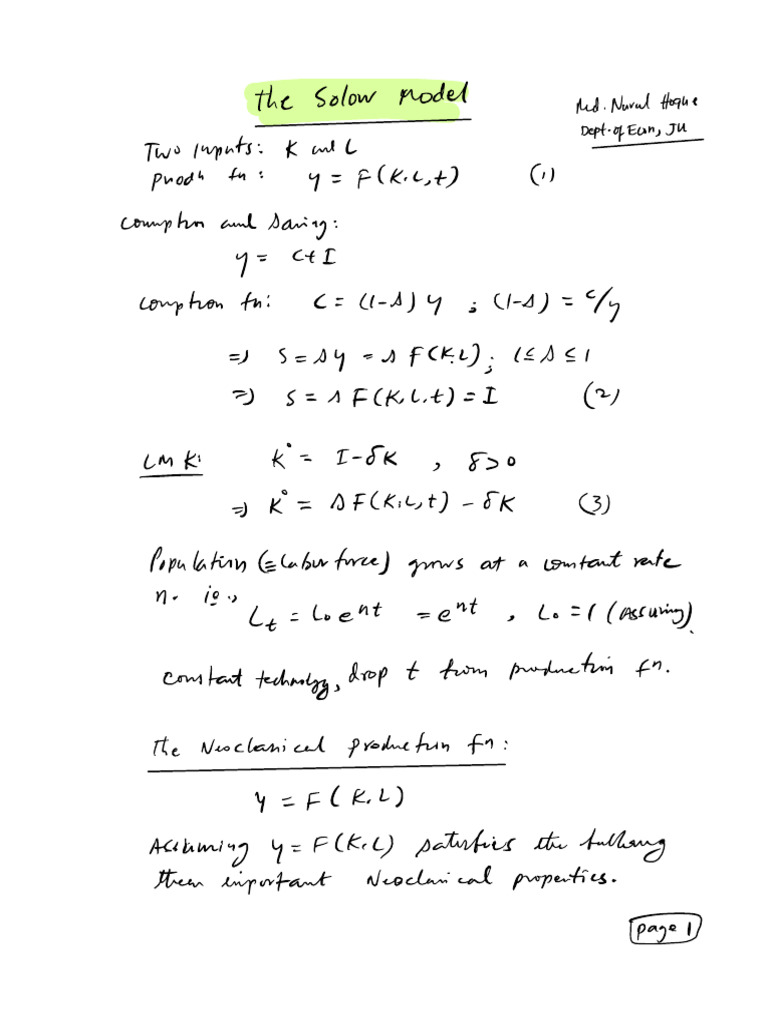 the Solow Model
Md. Nurul Hoque
Dept. of Econ, JU
Two inputs: K and L
Prodⁿ fn: Y = F(K,L,t) (1)
Consumption and Saving:
Y = C+I
Comption fn: C = (1-s) Y ; (1-s) = C/Y
⇒ S = sY = s F(K,L); 1 ≤ s ≤ 1
⇒ S = s F(K,L,t) = I (2)
LMK: K̇ = I-δK , δ>0
⇒ K̇ = s F(K,L,t) - δK (3)
Population (≡ labor force) grows at a constant rate
n. ie.,
L_t = L₀e^{nt} = e^{nt} , L₀ = 1 (Assuming).
Constant technology, drop t from production fn.
The Neoclassical production fn:
Y = F(K,L)
Assuming Y = F(K,L) satisfies the following
three important Neoclassical properties.
page 1